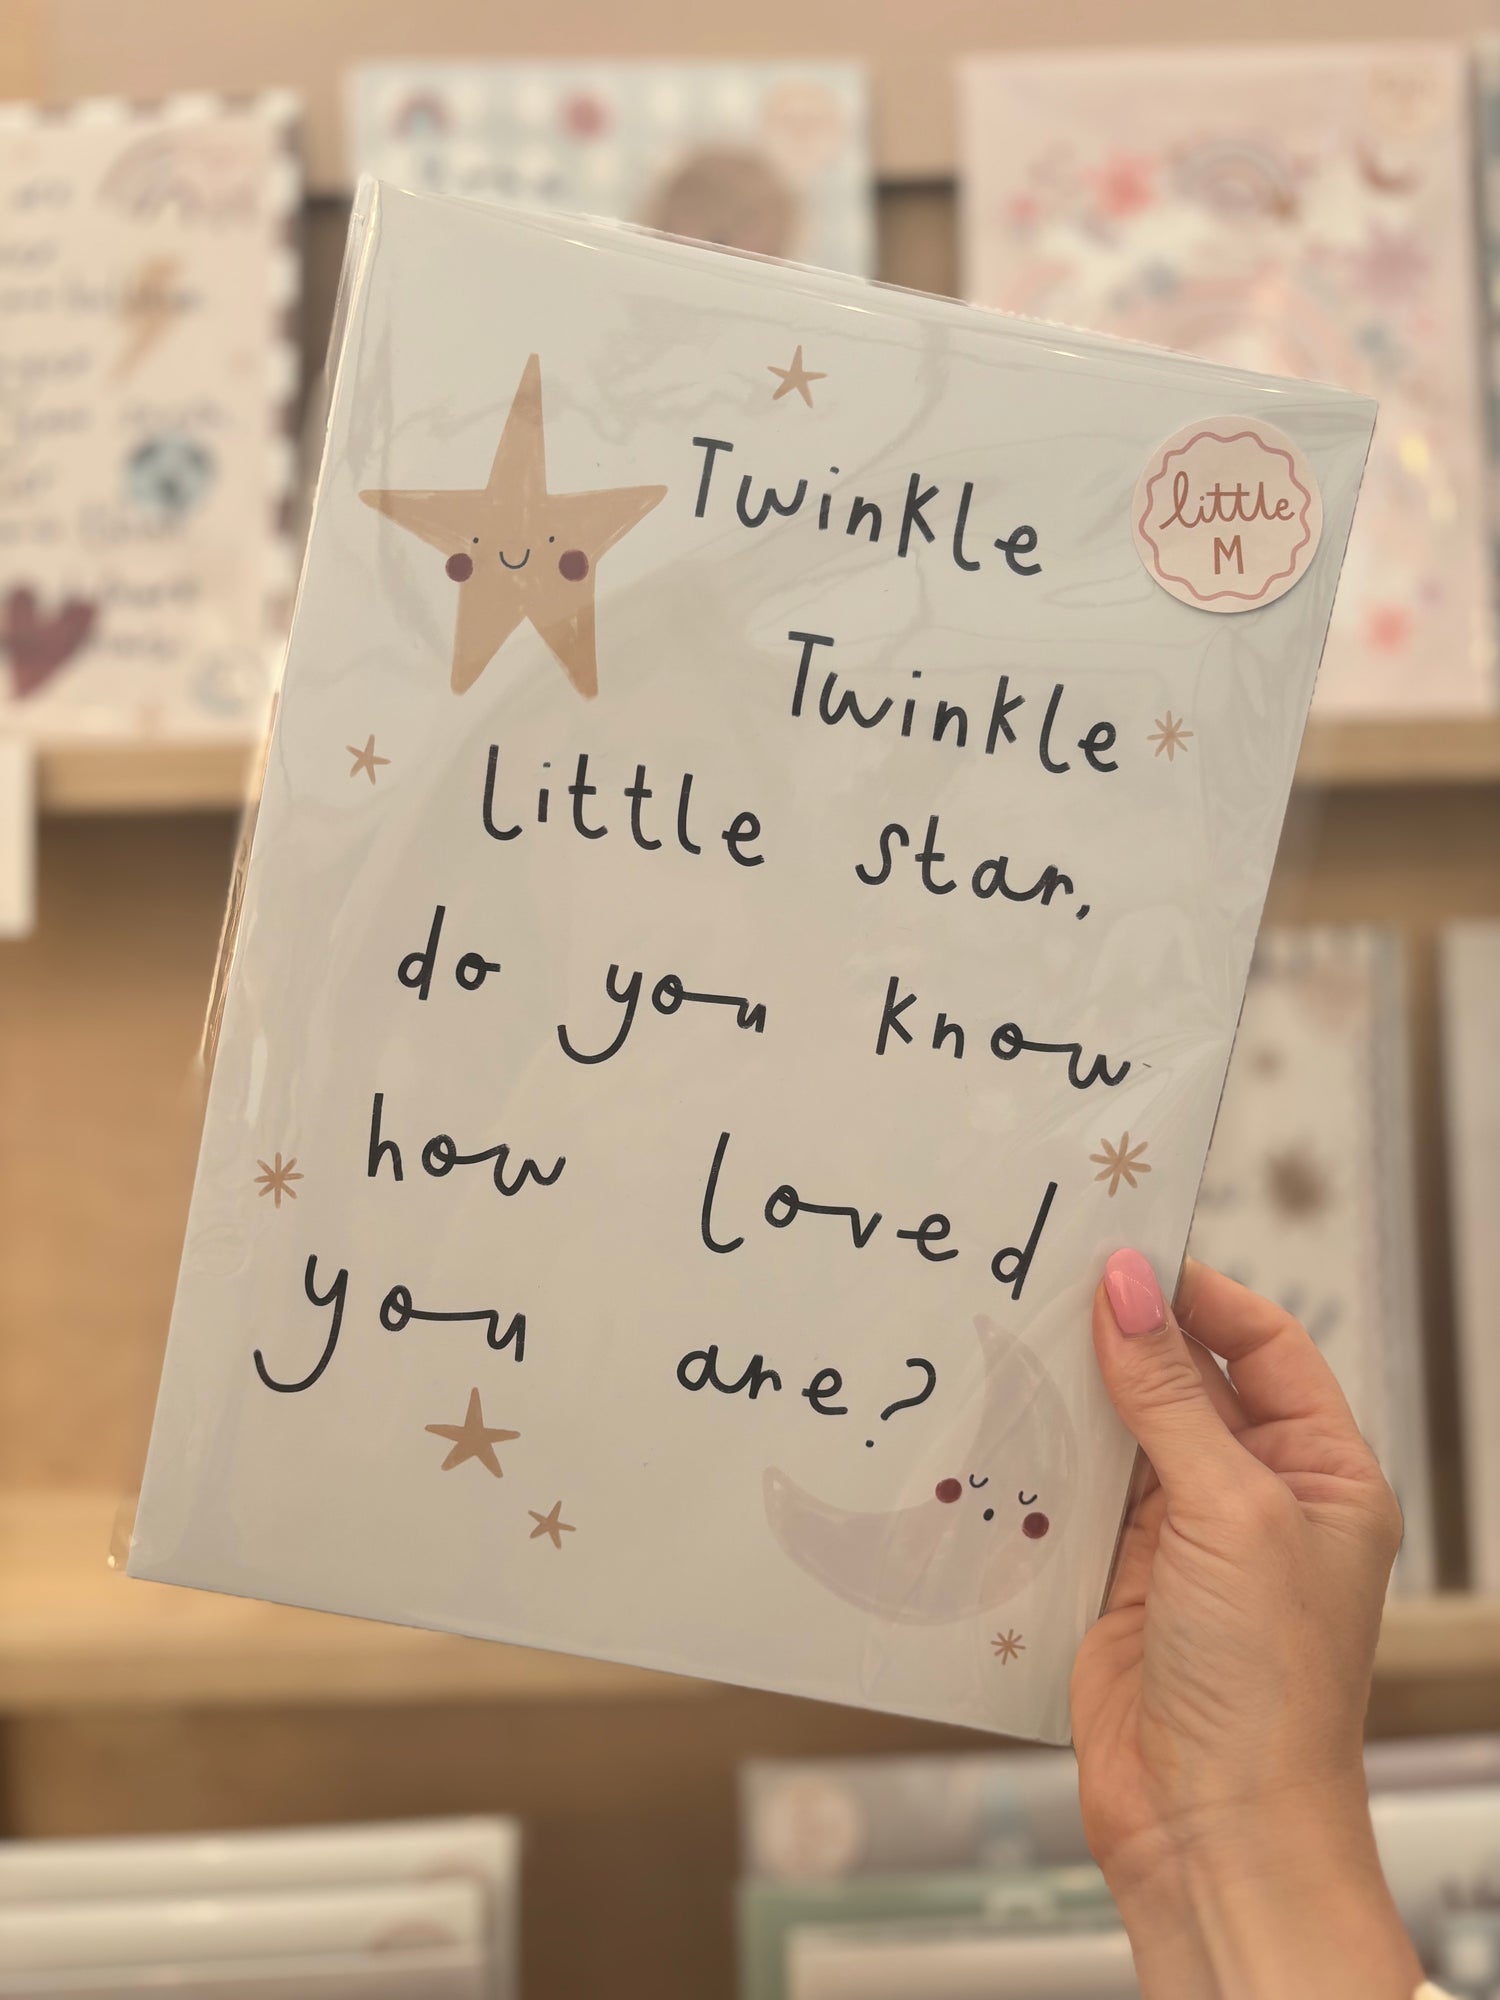 Twinkle
Twinkle
little star,
do you know
how loved
you are?
little
M